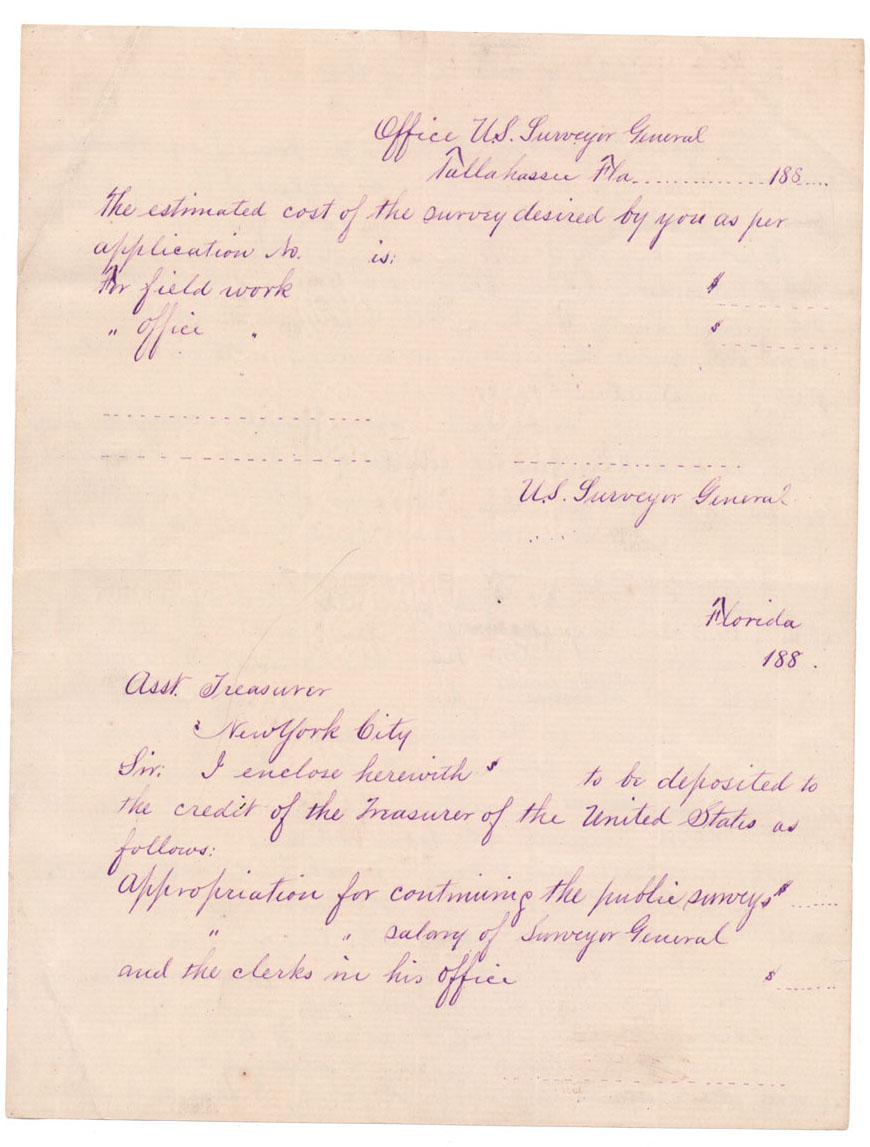 Office U.S. Surveyor General
Tallahassee Fla.............. 188....
The estimated cost of the survey desired by you as per
application No. is:
For field work $ ............
" office " $ ............
..............................
.............................. .........................
U.S. Surveyor General
Florida
188 .
Asst. Treasurer
New York City
Sir: I enclose herewith $ to be deposited to
the credit of the Treasurer of the United States as
follows:
Appropriation for continuing the public surveys $ ......
" " salary of Surveyor General
and the clerks in his office $ .......
..............................